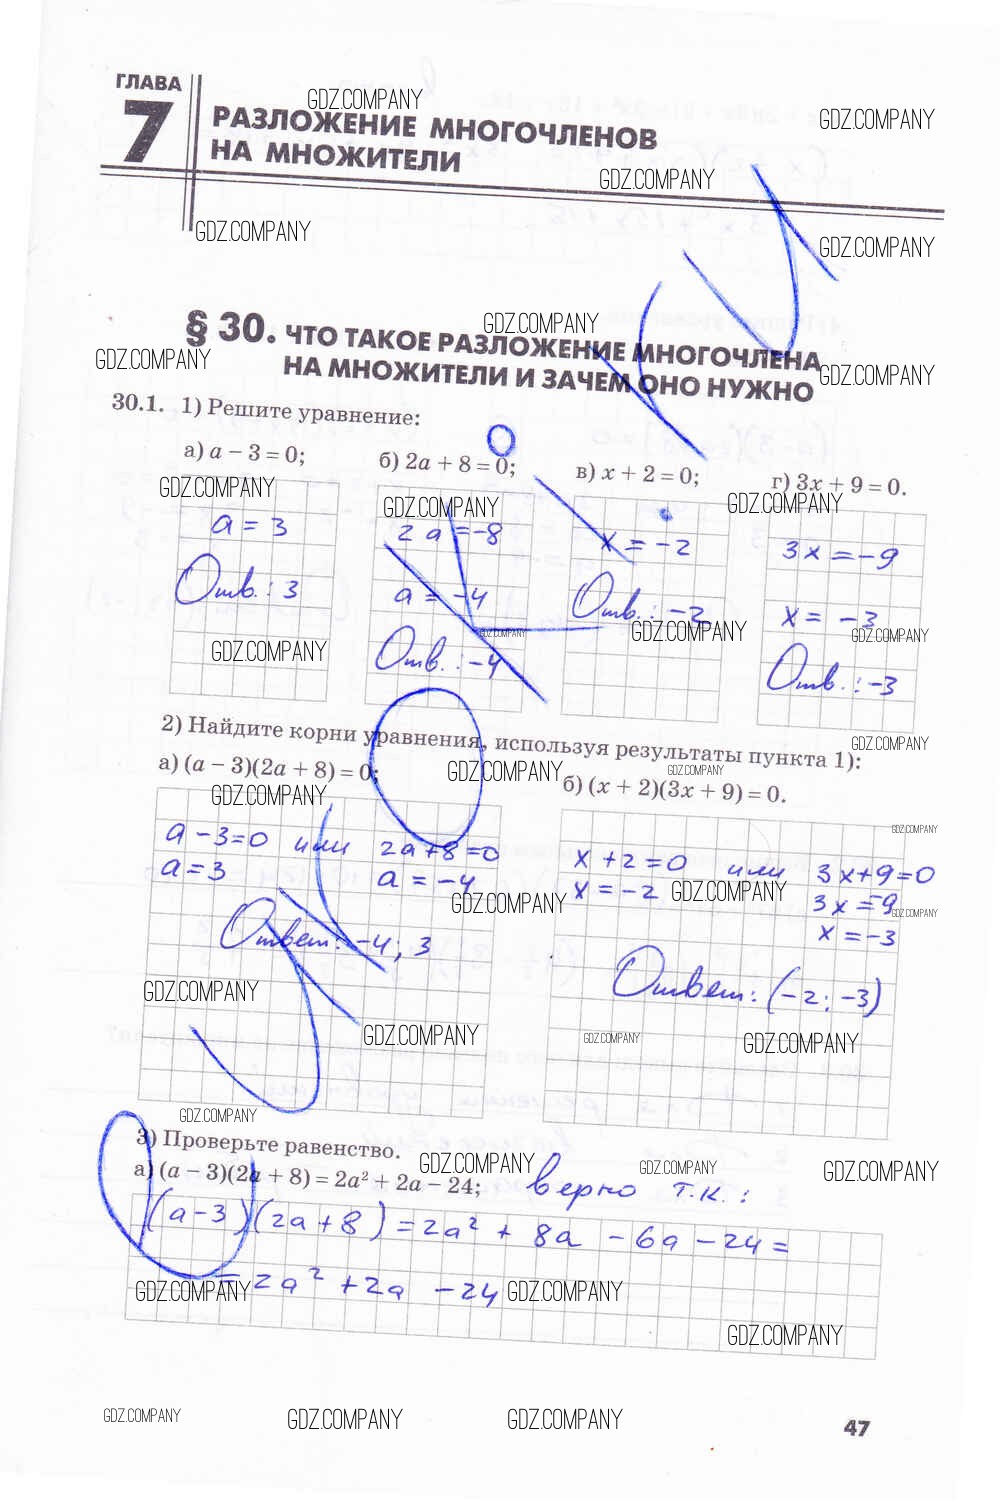 ГЛАВА
7
РАЗЛОЖЕНИЕ МНОГОЧЛЕНОВ
НА МНОЖИТЕЛИ
GDZ.COMPANY
GDZ.COMPANY
GDZ.COMPANY
GDZ.COMPANY
GDZ.COMPANY
§ 30. ЧТО ТАКОЕ РАЗЛОЖЕНИЕ МНОГОЧЛЕНА
НА МНОЖИТЕЛИ И ЗАЧЕМ ОНО НУЖНО
GDZ.COMPANY
GDZ.COMPANY
GDZ.COMPANY
30.1. 1) Решите уравнение:
а) a − 3 = 0; б) 2a + 8 = 0; в) x + 2 = 0; г) 3x + 9 = 0.
GDZ.COMPANY GDZ.COMPANY GDZ.COMPANY
a = 3
Отв.: 3
2a = -8
a = -4
Отв.: -4
x = -2
Отв.: -2
3x = -9
x = -3
Отв.: -3
GDZ.COMPANY GDZ.COMPANY GDZ.COMPANY GDZ.COMPANY
2) Найдите корни уравнения, используя результаты пункта 1):
GDZ.COMPANY
а) (a − 3)(2a + 8) = 0; б) (x + 2)(3x + 9) = 0.
GDZ.COMPANY GDZ.COMPANY GDZ.COMPANY
GDZ.COMPANY
a - 3 = 0 или 2a + 8 = 0
a = 3 a = -4
Ответ: -4; 3
x + 2 = 0 или 3x + 9 = 0
x = -2 3x = -9
x = -3
Ответ: (-2; -3)
GDZ.COMPANY GDZ.COMPANY GDZ.COMPANY
GDZ.COMPANY
GDZ.COMPANY GDZ.COMPANY GDZ.COMPANY
GDZ.COMPANY
3) Проверьте равенство.
GDZ.COMPANY GDZ.COMPANY GDZ.COMPANY
а) (a − 3)(2a + 8) = 2a² + 2a − 24; верно т.к.:
(a - 3)(2a + 8) = 2a² + 8a - 6a - 24 =
= 2a² + 2a - 24
GDZ.COMPANY GDZ.COMPANY
GDZ.COMPANY
GDZ.COMPANY GDZ.COMPANY GDZ.COMPANY
47